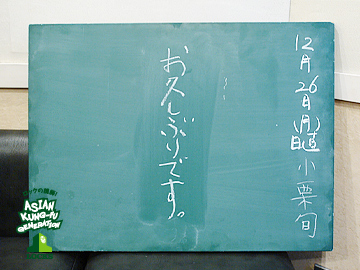 12月26日(月)
日直 小栗旬
お久しぶりです。
ロックの学園!
ASIAN
KUNG-FU
GENERATION